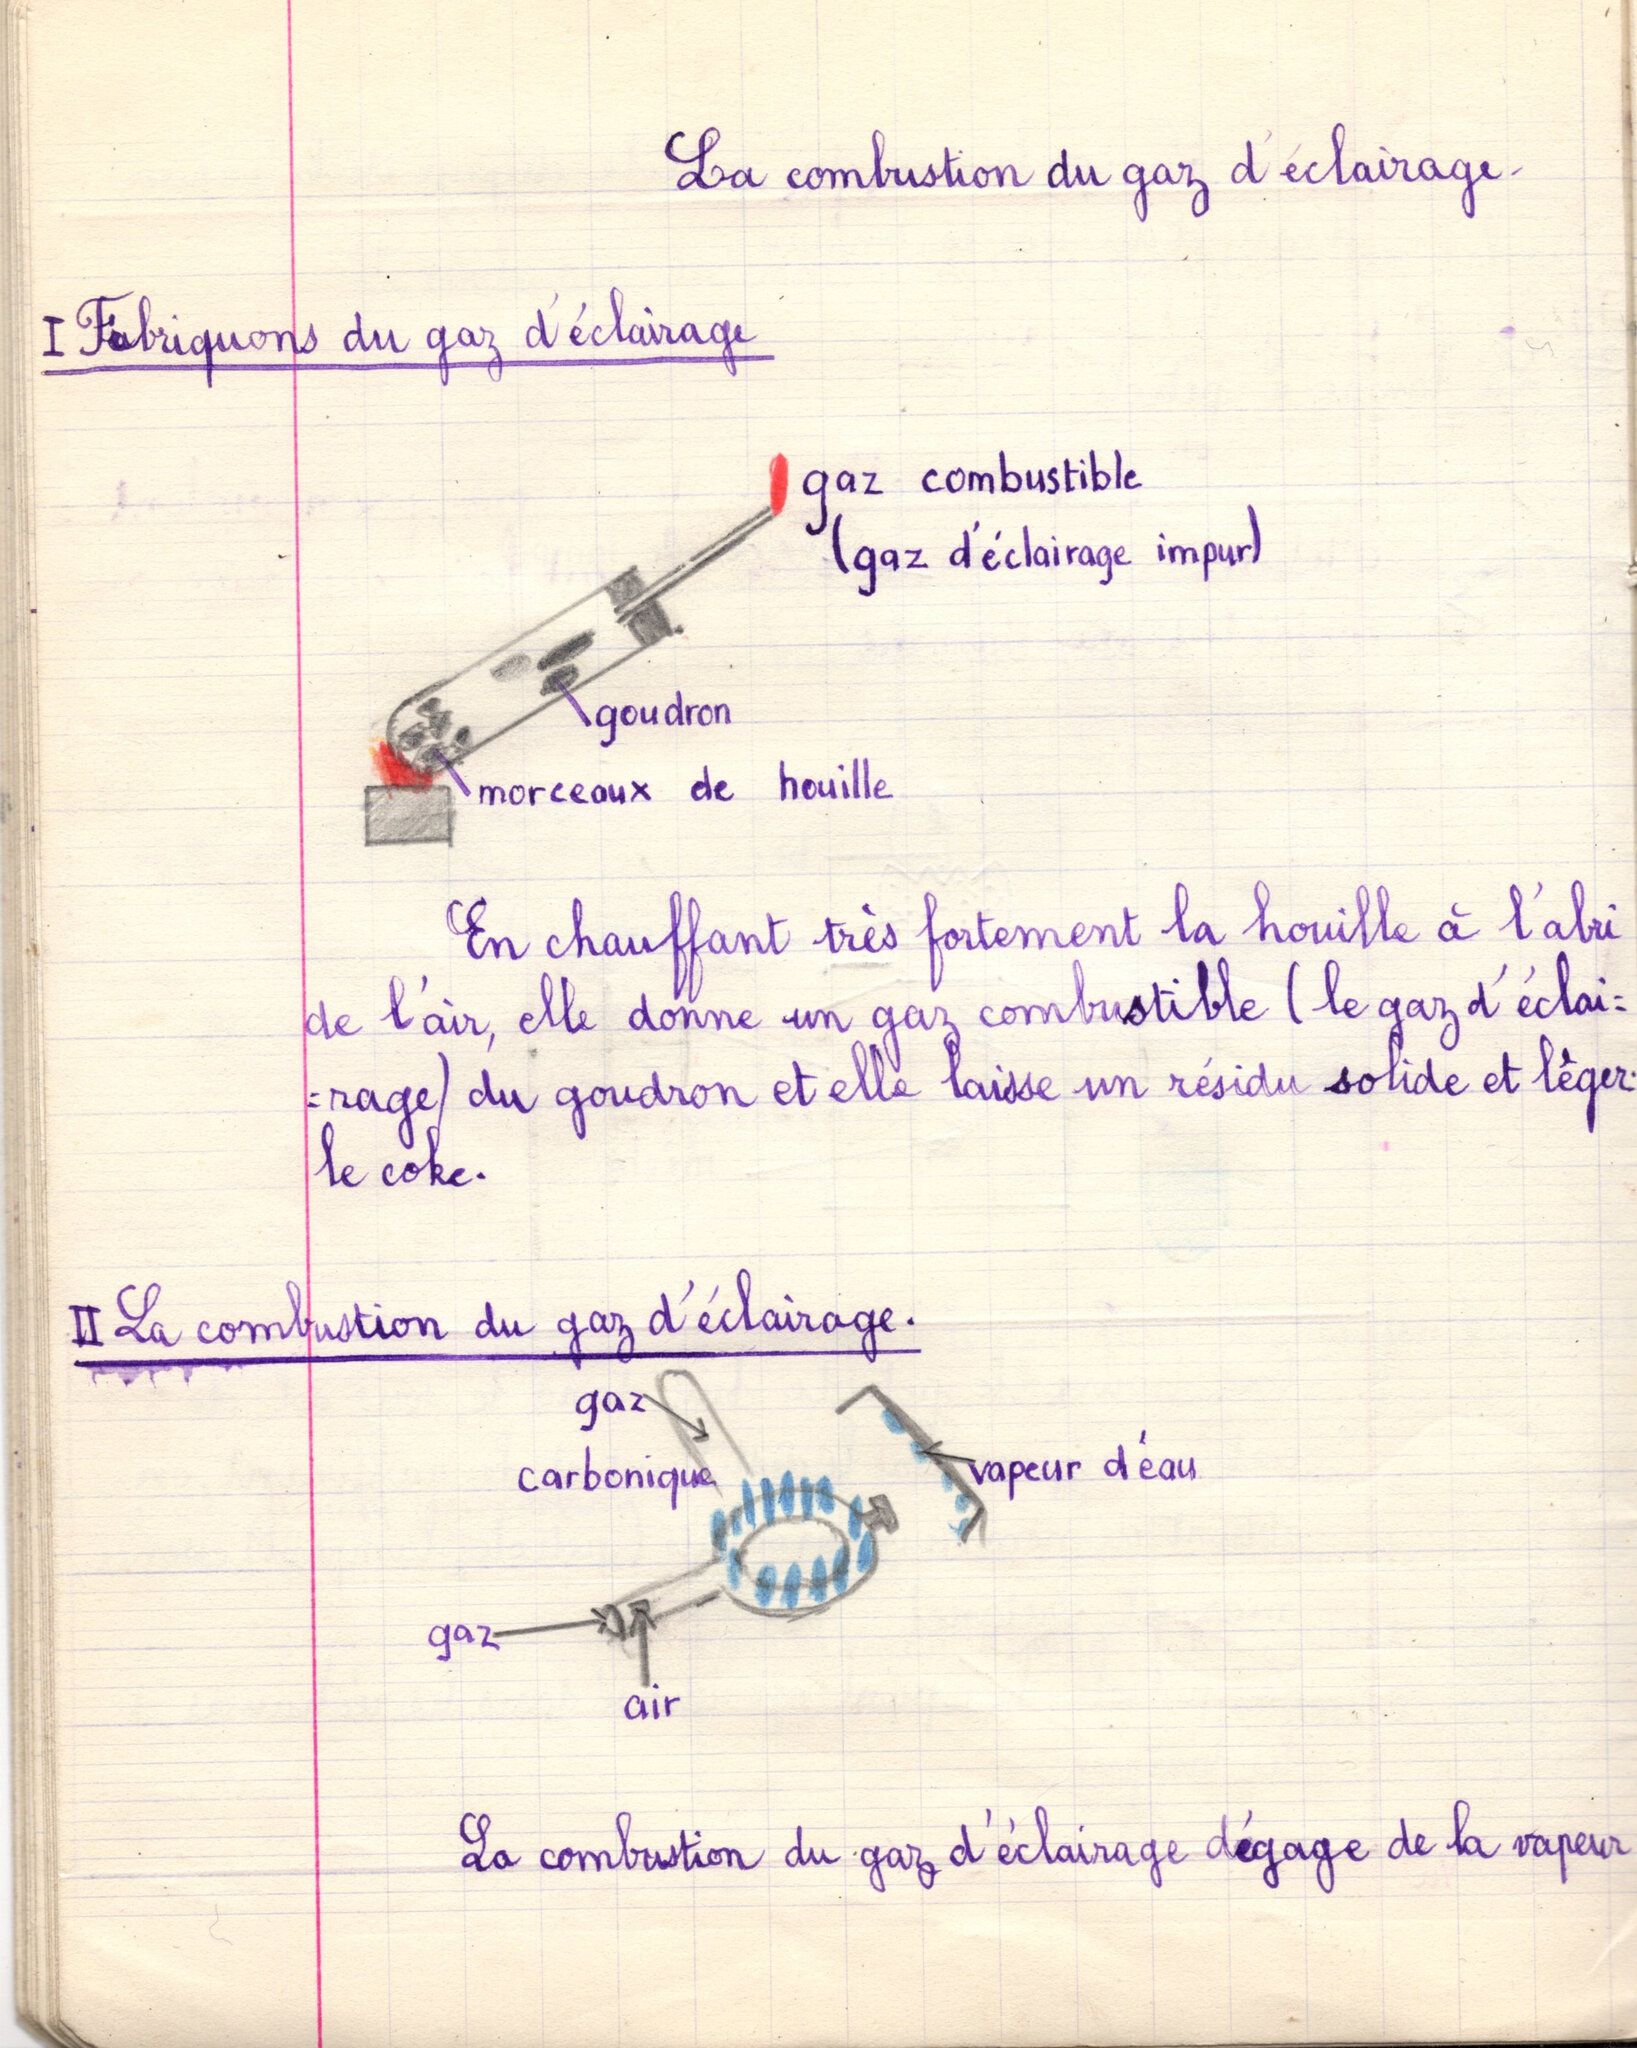 La combustion du gaz d'éclairage.
I Fabriquons du gaz d'éclairage
gaz combustible
(gaz d'éclairage impur)
goudron
morceaux de houille
En chauffant très fortement la houille à l'abri
de l'air, elle donne un gaz combustible (le gaz d'éclai=
=rage) du goudron et elle laisse un résidu solide et léger:
le coke.
II La combustion du gaz d'éclairage.
gaz
carbonique
vapeur d'éau
gaz
air
La combustion du gaz d'éclairage dégage de la vapeur